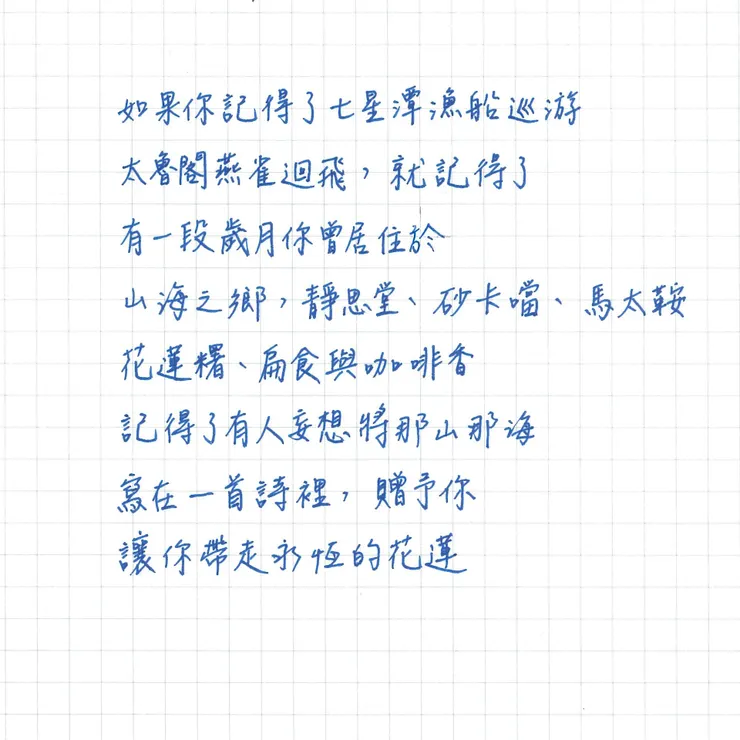 如果你記得了七星潭漁船巡游
太魯閣燕雀迴飛，就記得了
有一段歲月你曾居住於
山海之鄉，靜思堂、砂卡噹、馬太鞍
花蓮糬、扁食與咖啡香
記得了有人妄想將那山那海
寫在一首詩裡，贈予你
讓你帶走永恆的花蓮